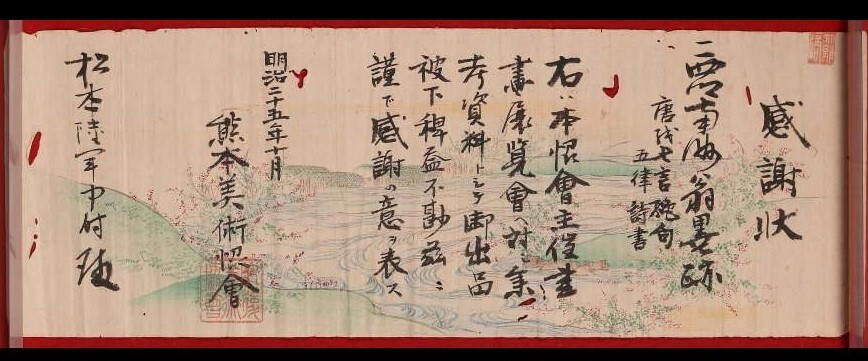 感謝状
一 西郷南洲翁墨跡
唐紙七言絶句
五律詩書
右ハ本協會主催書
畫展覧會ヘ対シ参
考資料トシテ御出品
被下稗益不尠茲ニ
謹で感謝の意ヲ表ス
明治二十五年十月
熊本美術協會
松本陸軍中付殿